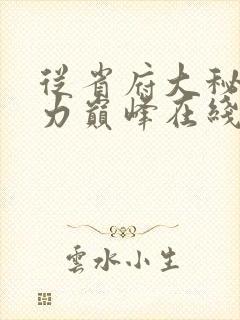 從省府大秘
力巔峰在綫
雲水小生